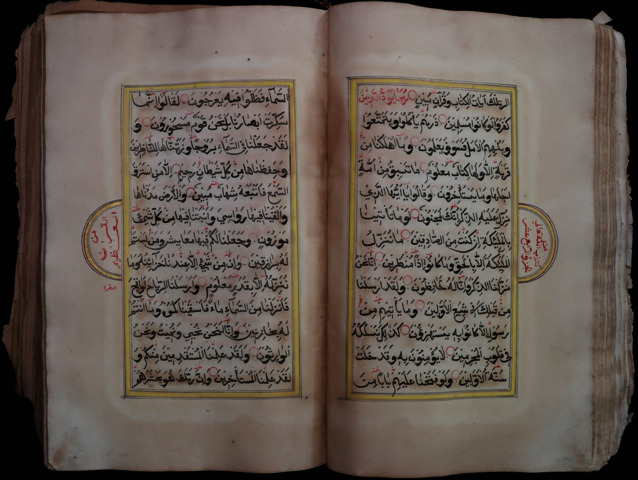 الر تلك آيات الكتاب وقرآن مبين ربما يود الذين
كفروا لو كانوا مسلمين ذرهم يأكلوا ويتمتعوا
ويلههم الأمل فسوف يعلمون وما أهلكنا من
قرية إلا ولها كتاب معلوم ما تسبق من أمة
أجلها وما يستأخرون وقالوا يا أيها الذي
نزل عليه الذكر إنك لمجنون لو ما تأتينا
بالملئكة إن كنت من الصادقين ما ننزل
الملئكة إلا بالحق وما كانوا إذا منظرين إنا نحن
نزلنا الذكر وإنا له لحافظون ولقد أرسلنا
من قبلك في شيع الأولين وما يأتيهم من
رسول إلا كانوا به يستهزؤن كذلك نسلكه
في قلوب المجرمين لا يؤمنون به وقد خلت
سنة الأولين ولو فتحنا عليهم بابا من
السماء فظلوا فيه يعرجون لقالوا إنما
سكرت أبصارنا بل نحن قوم مسحورون و
لقد جعلنا في السماء بروجا وزيناها للناظرين
وحفظناها من كل شيطان رجيم إلا من استرق
السمع فأتبعه شهاب مبين والأرض مددناها
وألقينا فيها رواسي وأنبتنا فيها من كل شيء
موزون وجعلنا لكم فيها معايش ومن لستم
له برازقين وإن من شيء إلا عندنا خزائنه وما
ننزله إلا بقدر معلوم وأرسلنا الرياح لواقح
فأنزلنا من السماء ماء فأسقيناكموه وما أنتم
له بخازنين وإنا لنحن نحيي ونميت ونحن
الوارثون ولقد علمنا المستقدمين منكم و
لقد علمنا المستأخرين وإن ربك هو يحشرهم